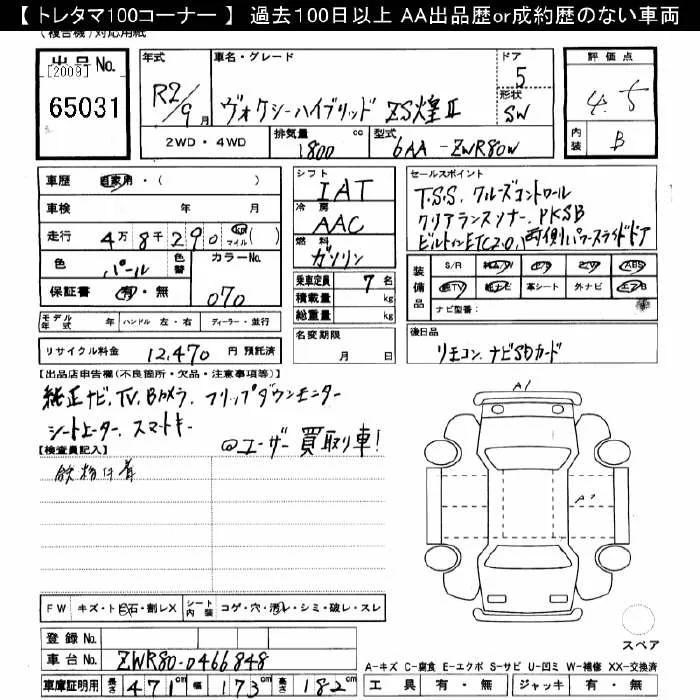 【 トレタマ100コーナー 】 過去100日以上 AA出品歴or成約歴のない車両
(複合機)対応用紙
出品No. [2009]
65031
年式 R2/9月
車名・グレード ヴォクシーハイブリッド ZS煌Ⅱ
ドア 5
形状 SW
評価点 4.5
内装 B
2WD・4WD
排気量 1800 cc
型式 6AA-ZWR80W
車歴 自家用・( )
車検 年 月
走行 4万8千290 km マイル ( )
色 パール 色替 カラーNo. 070
保証書 有・無
モデル年式 年 ハンドル 左・右 ディーラー・並行
リサイクル料金 12,470 円 預託済
シフト IAT
冷房 AAC
燃料 ガソリン
乗車定員 7名
積載量 kg
総重量 kg
名変期限 月 日
セールスポイント
T.S.S. クルーズコントロール
クリアランスソナー. PKSB
ビルトインETC2.0, 両側パワースライドドア
装備品 S/R 純A/W P/S P/W ABS
純TV 純ナビ 革シート 外ナビ エアB
ナビ型番:
後日品
リモコン. ナビSDカード
【出品店申告欄(不良箇所・欠品・注意事項等)】
純正ナビ. TV. Bカメラ. フリップダウンモニター
シートヒーター. スマートキー
@ユーザー買取り車!
【検査員記入】
A1
A2
FW キズ・ト石・割レX シート内装 コゲ・穴・汚レ・シミ・破レ・スレ
スペア
登録No.
車台No. ZWR80-0466848
A-キズ C-腐食 E-エクボ S-サビ U-凹ミ W-補修 XX-交換済
車庫証明用 長さ 471cm 幅 173cm 高さ 182cm
工具 有・無 ジャッキ 有・無